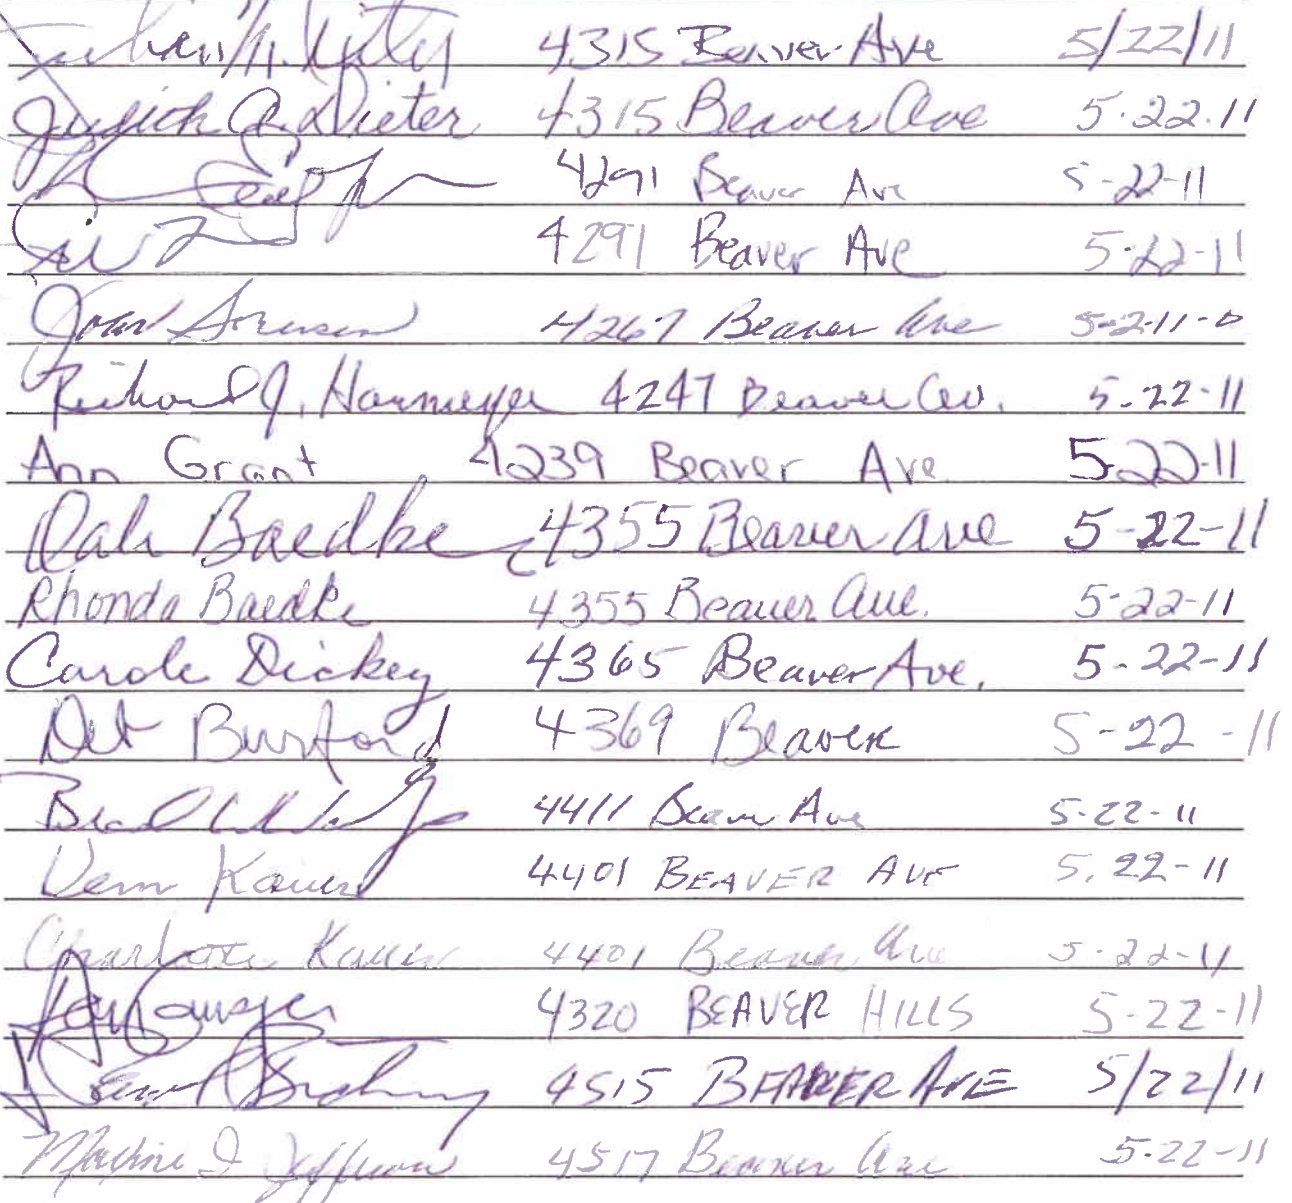 4315 Beaver Ave 5/22/11
Judith A. Dieter 4315 Beaver Ave 5-22-11
4291 Beaver Ave 5-22-11
4291 Beaver Ave 5-22-11
Joan Sorensen 4267 Beaver Ave
Richard J. Harmeyer 4247 Beaver Av. 5-22-11
Ann Grant 4239 Beaver Ave 5-22-11
Dale Baedke 4355 Beaver Ave 5-22-11
Rhonda Baedke 4355 Beaver Ave. 5-22-11
Carole Dickey 4365 Beaver Ave. 5-22-11
Deb Burford 4369 Beaver 5-22-11
4411 Beaver Ave 5-22-11
Vern 4401 BEAVER AVE 5.22-11
Charlotte 4401 Beaver Ave 5-22-11
4320 BEAVER HILLS 5-22-11
4515 BEAVER AVE 5/22/11
Maxine 4517 Beaver Ave 5-22-11